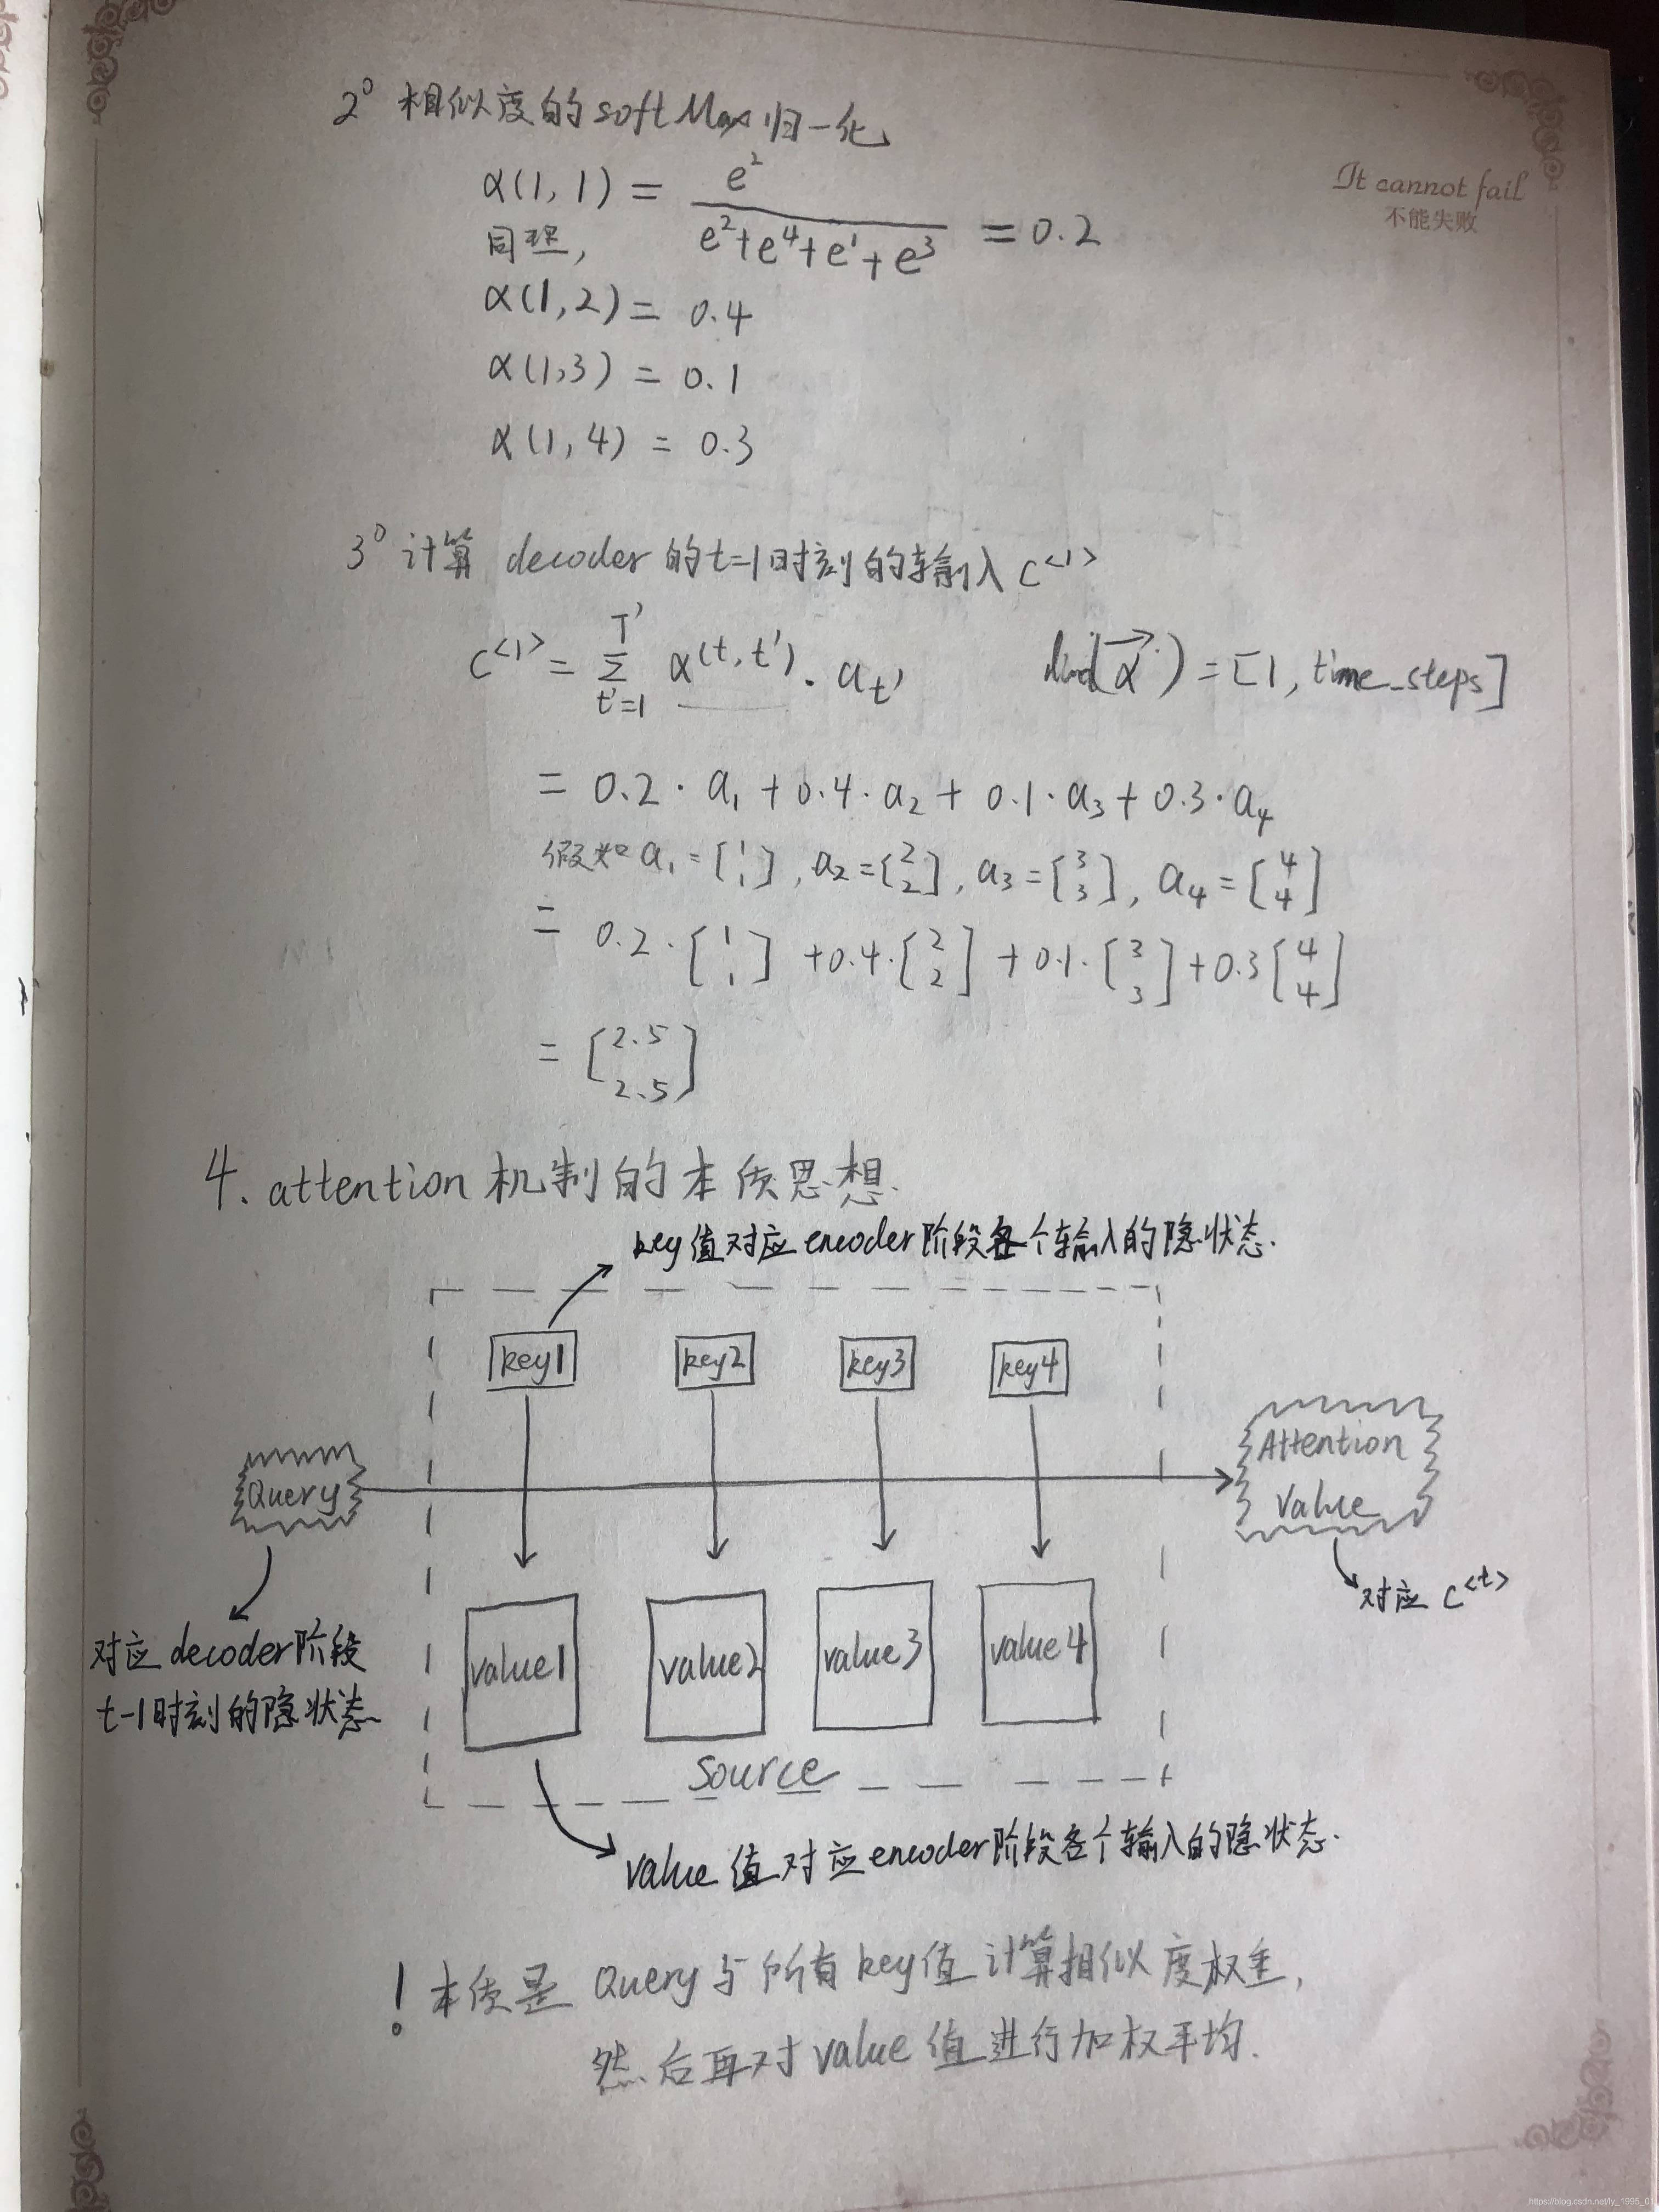 2° 相似度的softMax归一化
It cannot fail
不能失败
α(1,1) = e² / (e²+e⁴+e¹+e³) = 0.2
同理,
α(1,2) = 0.4
α(1,3) = 0.1
α(1,4) = 0.3
3° 计算 decoder 的t=1时刻的输入 c<1>
c<1> = Σ_{t'=1}^{T'} α(t,t') · a_t' dim(α→) = [1, time_steps]
= 0.2 · a₁ + 0.4 · a₂ + 0.1 · a₃ + 0.3 · a₄
假如 a₁ = [1 1], a₂ = [2 2], a₃ = [3 3], a₄ = [4 4]
= 0.2 · [1 1] + 0.4 · [2 2] + 0.1 · [3 3] + 0.3 [4 4]
= [2.5 2.5]
4. attention 机制的本质思想.
key值对应encoder阶段各个输入的隐状态.
key1 key2 key3 key4
Query
Attention
Value
对应 c<t>
对应decoder阶段
t-1时刻的隐状态
value1 value2 value3 value4
Source
value 值对应encoder阶段各个输入的隐状态.
! 本质是 Query与所有key值计算相似度权重,
然后再对value值进行加权平均.